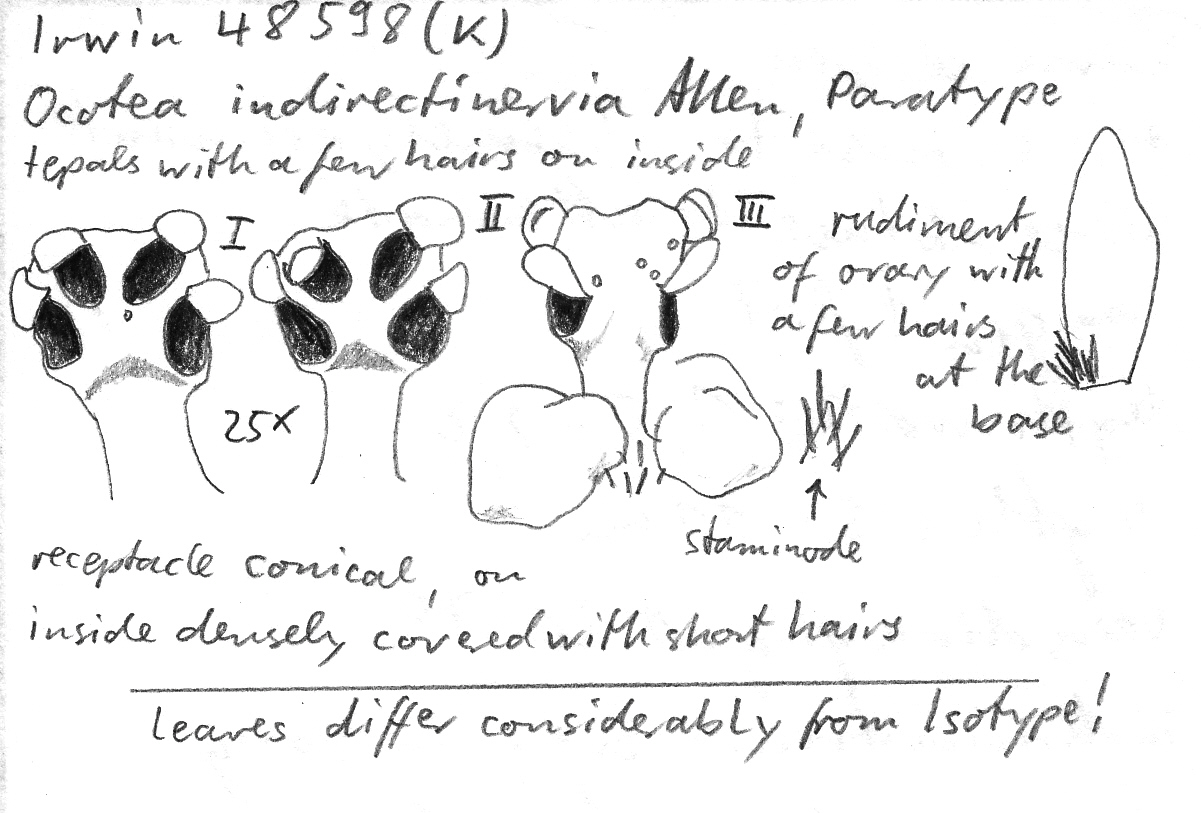 Irwin 48598 (K)
Ocotea indirectinervia Allen, Paratype
tepals with a few hairs on inside
I
II
III
rudiment
of ovary with
a few hairs
at the
base
25x
staminode
receptacle conical, on
inside densely covered with short hairs
leaves differ considerably from Isotype!